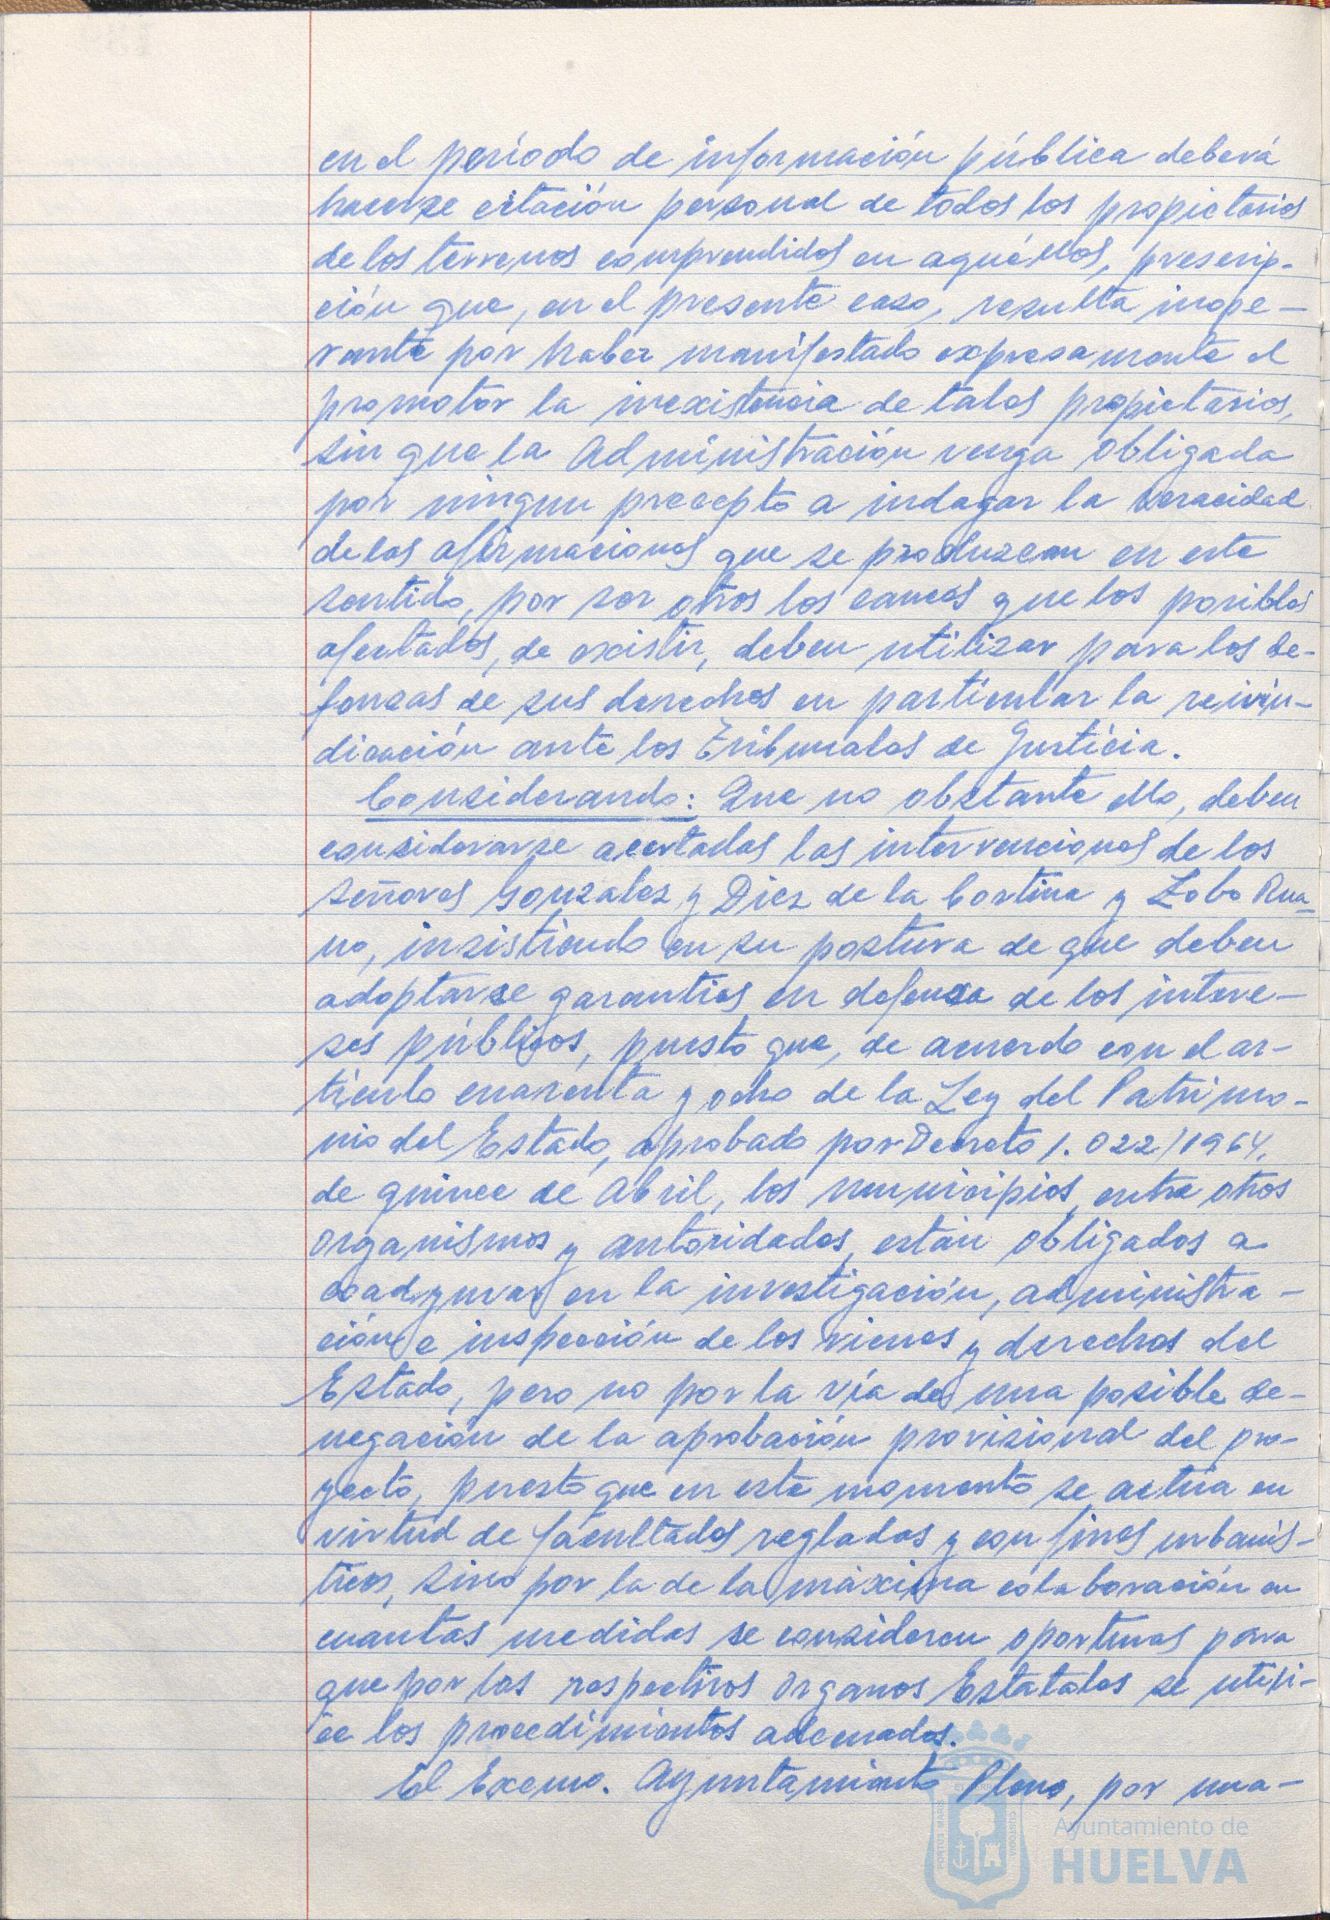 en el período de información pública deberá
hacerse citación personal de todos los propietarios
de los terrenos comprendidos en aquéllos, prescrip-
ción que, en el presente caso, resulta inope-
rante por haber manifestado expresamente el
promotor la inexistencia de tales propietarios,
sin que la Administración venga obligada
por ningun precepto a indagar la veracidad
de las afirmaciones que se produzcan en este
sentido, por ser otros los cauces que los posibles
afectados, de existir, deben utilizar para los de-
fensas de sus derechos en particular la reivin-
dicación ante los Tribunales de Justicia.
Considerando: Que no obstante ello, deben
considerarse acertadas las intervenciones de los
señores González y Diez de la Cortina y Lobo Rua-
no, insistiendo en su postura de que deben
adoptarse garantías en defensa de los intere-
ses públicos, puesto que, de acuerdo con el ar-
tículo cuarenta y ocho de la Ley del Patrimo-
nio del Estado, aprobado por Decreto 1.022/1964,
de quince de Abril, los municipios, entre otros
organismos y autoridades, están obligados a
coadyuvar en la investigación, administra-
ción e inspección de los vienes y derechos del
Estado, pero no por la vía de una posible de-
negación de la aprobación provisional del pro-
yecto, puesto que en este momento se actúa en
virtud de facultades regladas y con fines urbanís-
ticos, sino por la de la máxima colaboración en
cuantas medidas se consideren oportunas para
que por los respectivos Organos Estatales se utili-
ce los procedimientos adecuados.
El Excmo. Ayuntamiento Pleno, por una-
Ayuntamiento de
HUELVA